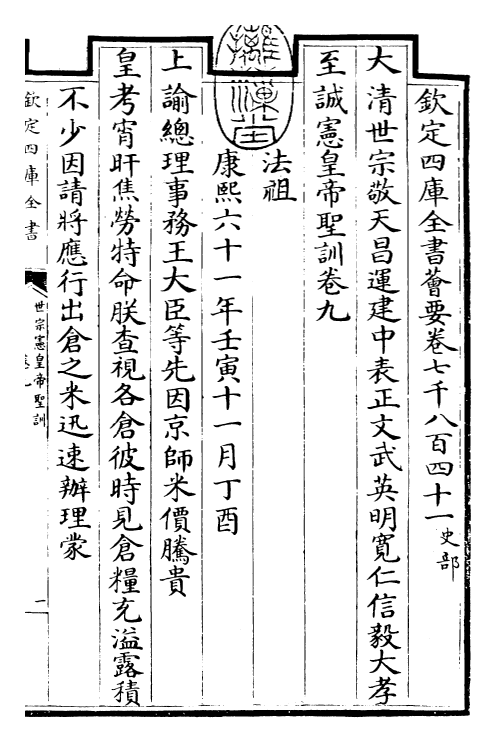 欽定四庫全書薈要卷七千八百四十一史部
大清世宗敬天昌運建中表正文武英明寬仁信毅大孝
至誠憲皇帝聖訓卷九
法祖
康熙六十一年壬寅十一月丁酉
上諭總理事務王大臣等先因京師米價騰貴
皇考宵旰焦勞特命朕查視各倉彼時見倉糧充溢露積
不少因請將應行出倉之米迅速辦理蒙
欽定四庫全書
世宗憲皇帝聖訓